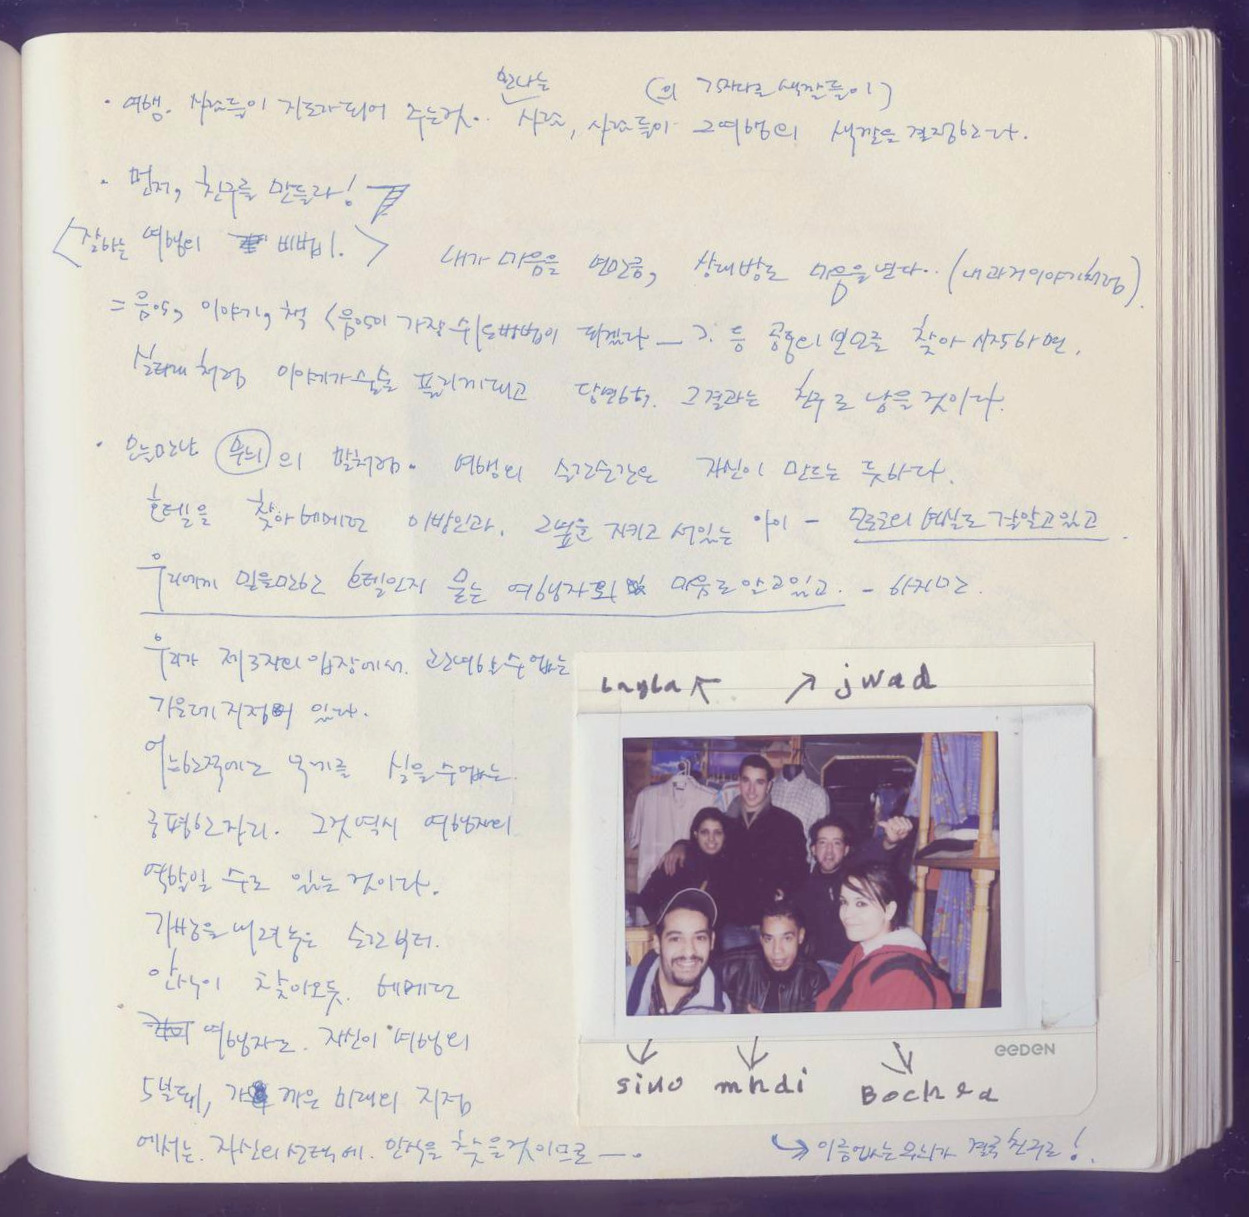 만나는 (의 각자다른 색깔들이)
· 여행. 사람들이 지도가 되어 주는것.. 사람, 사람들이 그 여행의 색깔을 결정한다.
· 먼저, 친구를 만들라!
<잘하는 여행의 비법1.> 내가 마음을 연만큼, 상대방도 마음을 연다.. (내 과거이야기처럼).
= 음악, 이야기, 책 <음악이 가장 쉬운방법이 되겠다 등 공통의 을 찾아 시작하면,
실타래처럼 이야기가 술술 풀리게되고 당연히, 그결과는 친구로 남을 것이다.
· 오늘만난 무늬의 말처럼. 여행의 순간순간은 자신이 만드는 듯하다.
호텔을 찾아 헤메던 이방인과, 그 지키고 서있는 아이 - 모로코의 현실도 잘알고있고
우리에게 믿을만한 호텔인지 묻는 여행자의 마음도 알고있고. - 하지만.
우리가 제3자의 입장에서. 관여할수 없는
가운데지점에 있다.
어느한쪽에도 무게를 실을수없는
공평한자리. 그것 역시 여행자의
역할일 수도 있는 것이다.
가방을 내려놓은 순간부터.
안식이 찾아오듯. 헤메던
여행자는. 자신이 여행의
5분뒤, 가까운 미래의 지점
에서는. 자신의 선택에. 안식을 찾을것이므로 —.
layla ↖ ↗ jwad
eeden
sino mhdi Bochra
↪ 이름없는 무늬가 결국 친구로!